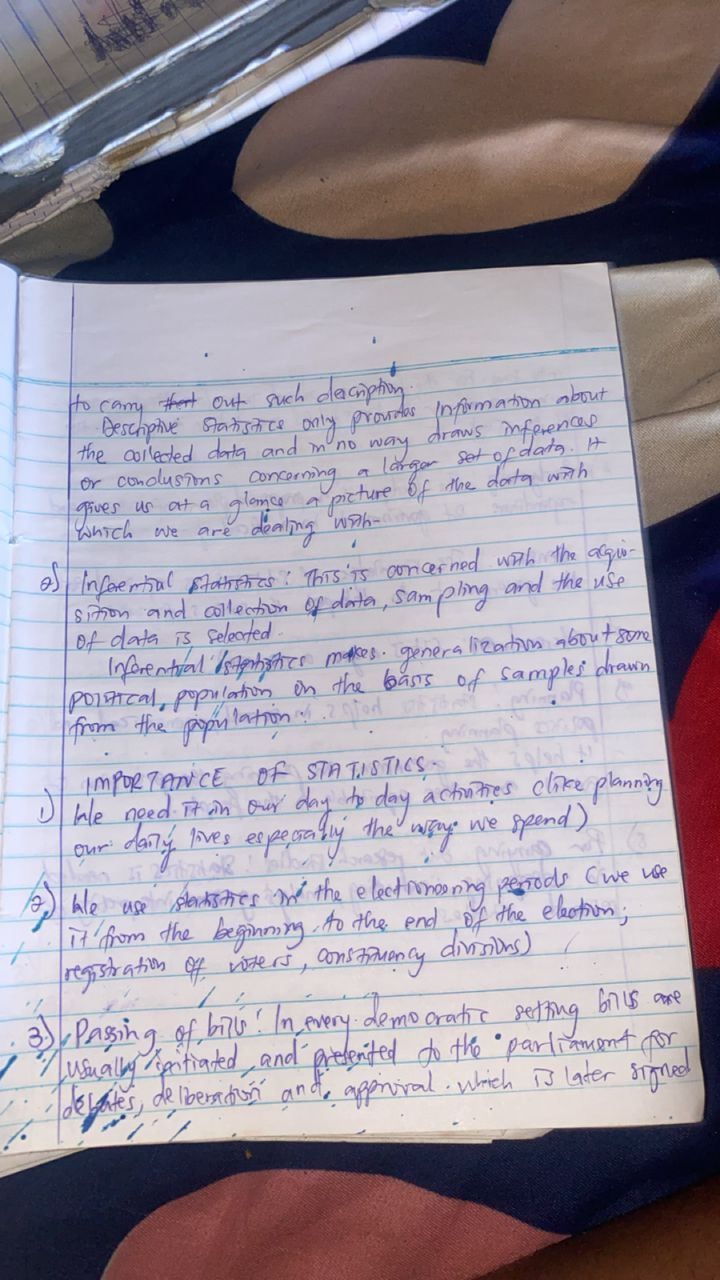 to carry out such description.
Descriptive Statistics only provides information about
the collected data and in no way draws inferences
or conclusions concerning a larger set of data. It
gives us at a glance a picture of the data with
which we are dealing with-
2) Inferential Statistics: This is concerned with the acqui-
sition and collection of data, sampling and the use
of data is selected.
Inferential statistics makes generalization about some
political, population on the basis of samples drawn
from the population.
IMPORTANCE OF STATISTICS
1) We need it in our day to day activities (like planning
our daily lives especially the way we spend)
2) We use statistics in the electioneering periods (we use
it from the beginning to the end of the election;
registration of voters, constituency divisions)
3) Passing of bills: In every democratic setting bills are
usually initiated and presented to the parliament for
debates, deliberation and approval which is later signed